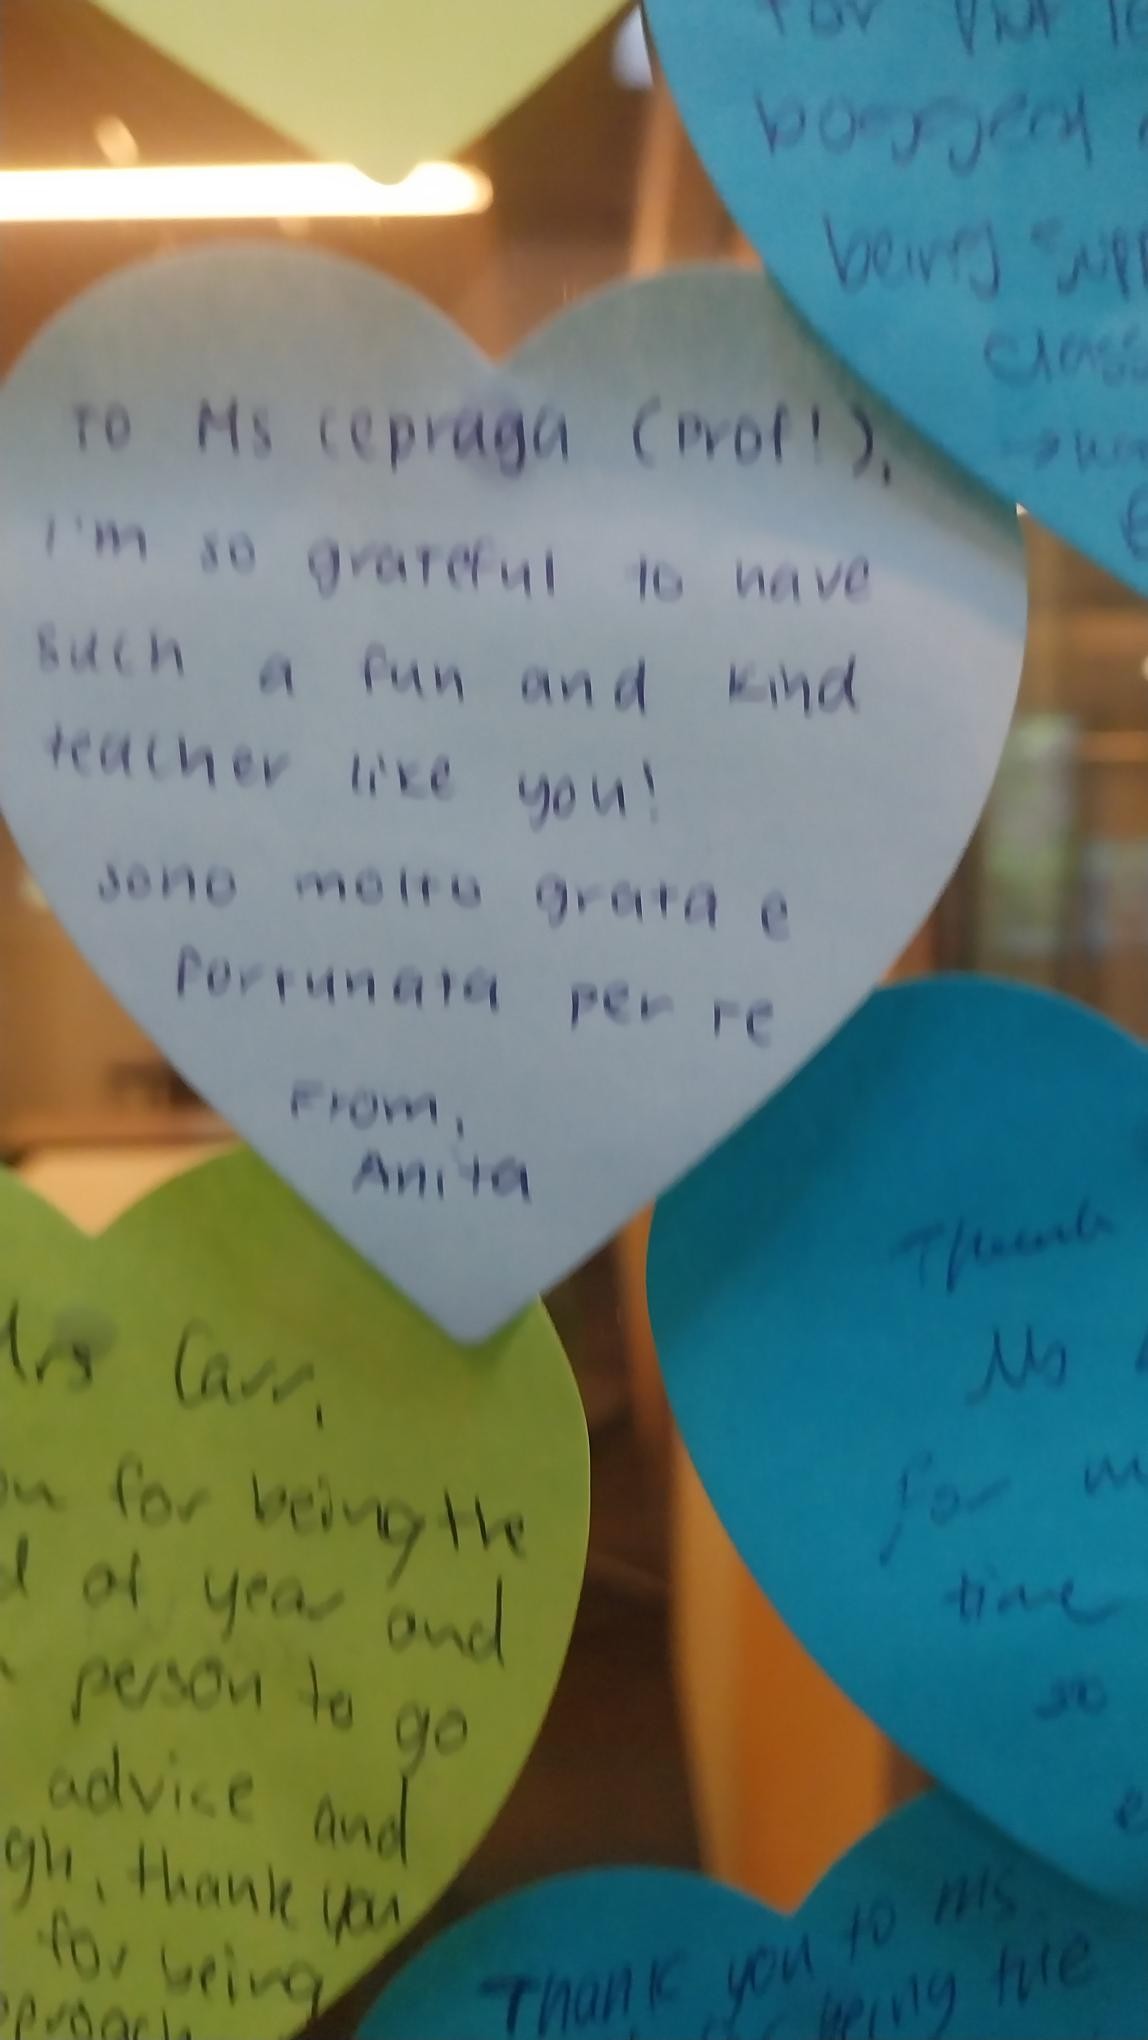 To Ms Cepraga (Prof!),
I'm so grateful to have
such a fun and kind
teacher like you!
sono molto grata e
fortunata per te
From,
Anita
bogged
being
Mrs Carr,
for being the
of year and
person to go
advice and
thank you
for being
Ms
for
time
so
Thank you to Ms
being the